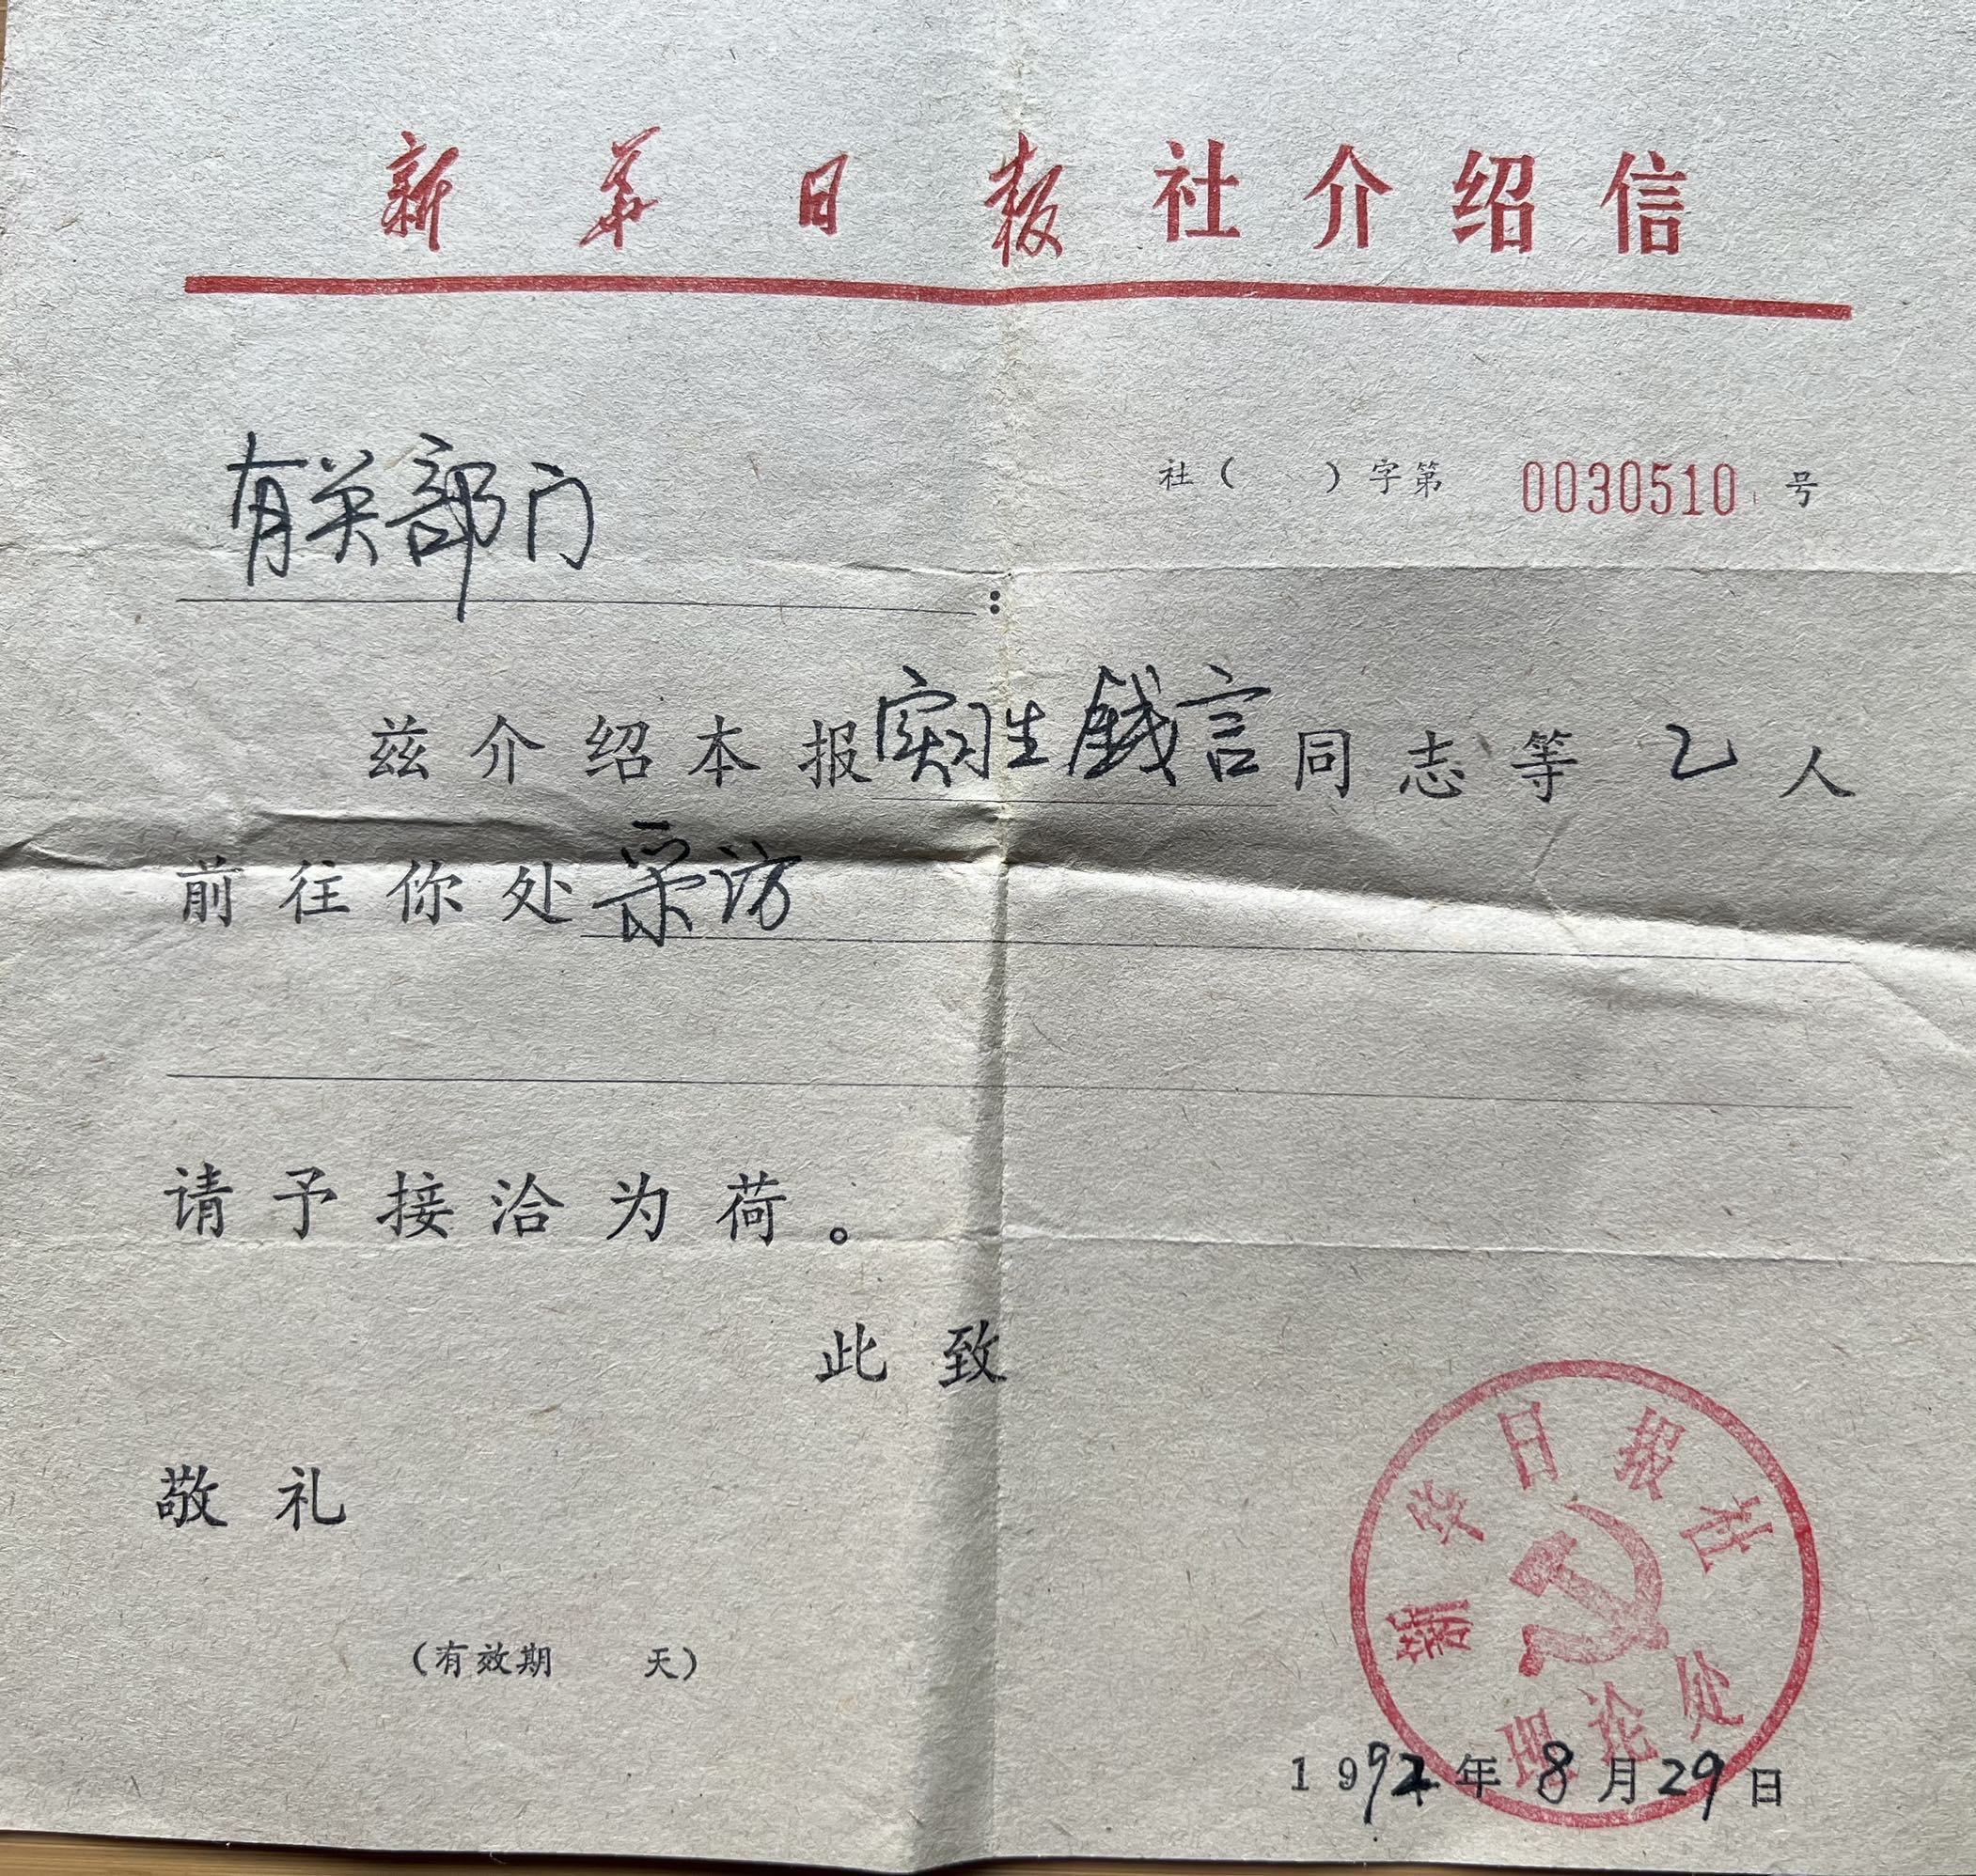 新华日报社介绍信
社（ ）字第 0030510 号
有关部门：
兹介绍本报实习生钱言同志等 乙 人
前往你处采访
请予接洽为荷。
此致
敬礼
（有效期 天）
新华日报社
理论处
1992年8月29日